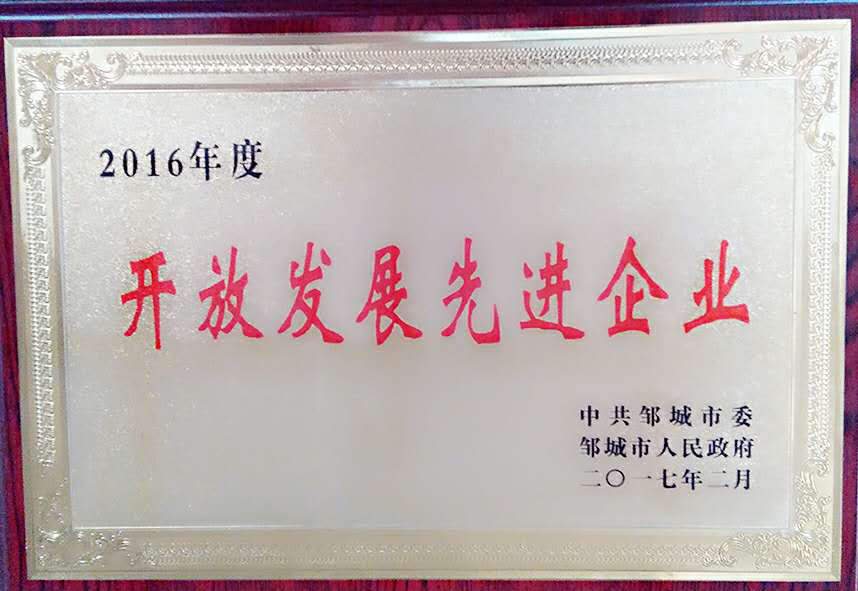 2016年度
开放发展先进企业
中共邹城市委
邹城市人民政府
二〇一七年二月